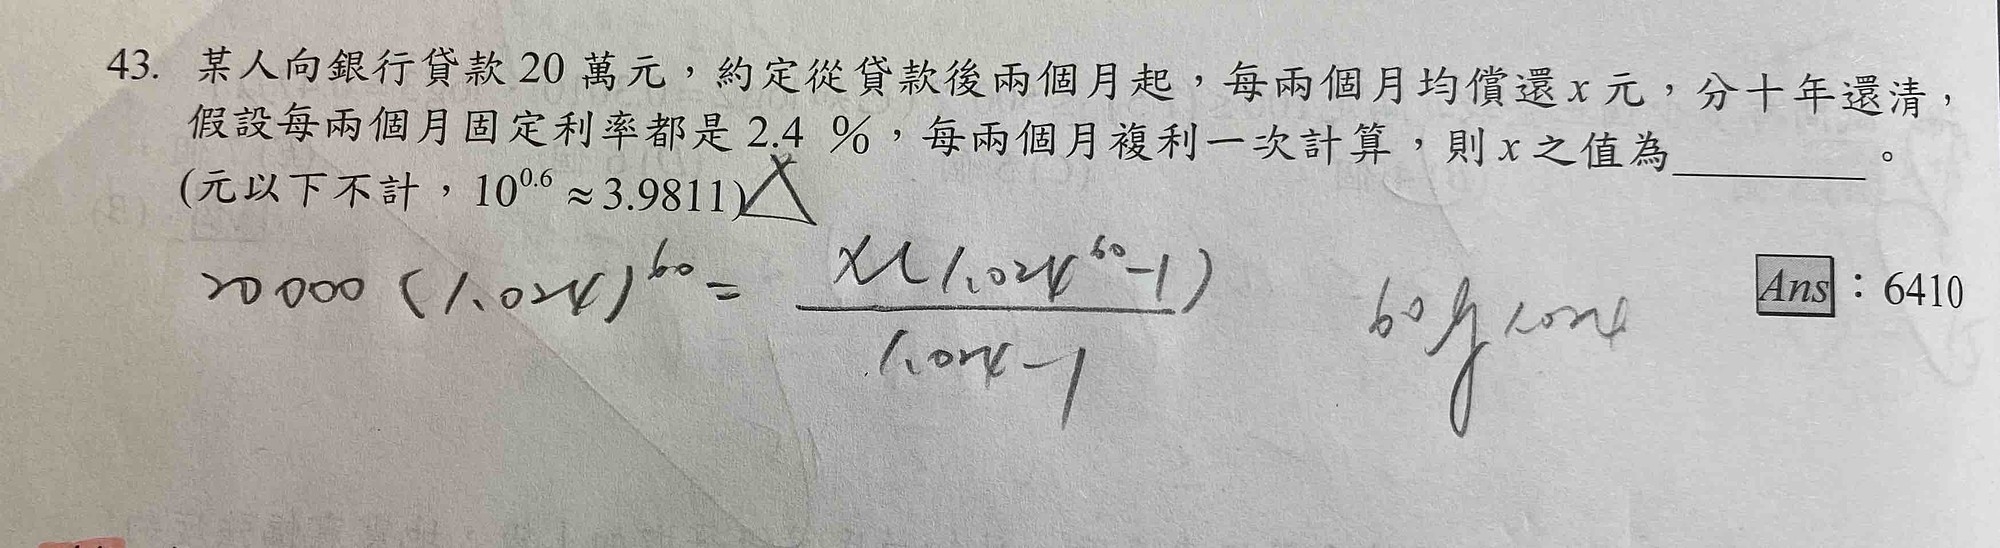 43. 某人向銀行貸款 20 萬元，約定從貸款後兩個月起，每兩個月均償還 x 元，分十年還清，
假設每兩個月固定利率都是 2.4 %，每兩個月複利一次計算，則 x 之值為________。
(元以下不計，10^0.6 ≈ 3.9811)
20000 (1.024)^60 = x(1.024^60 - 1) / 1.024 - 1
60 log 1.024
Ans：6410